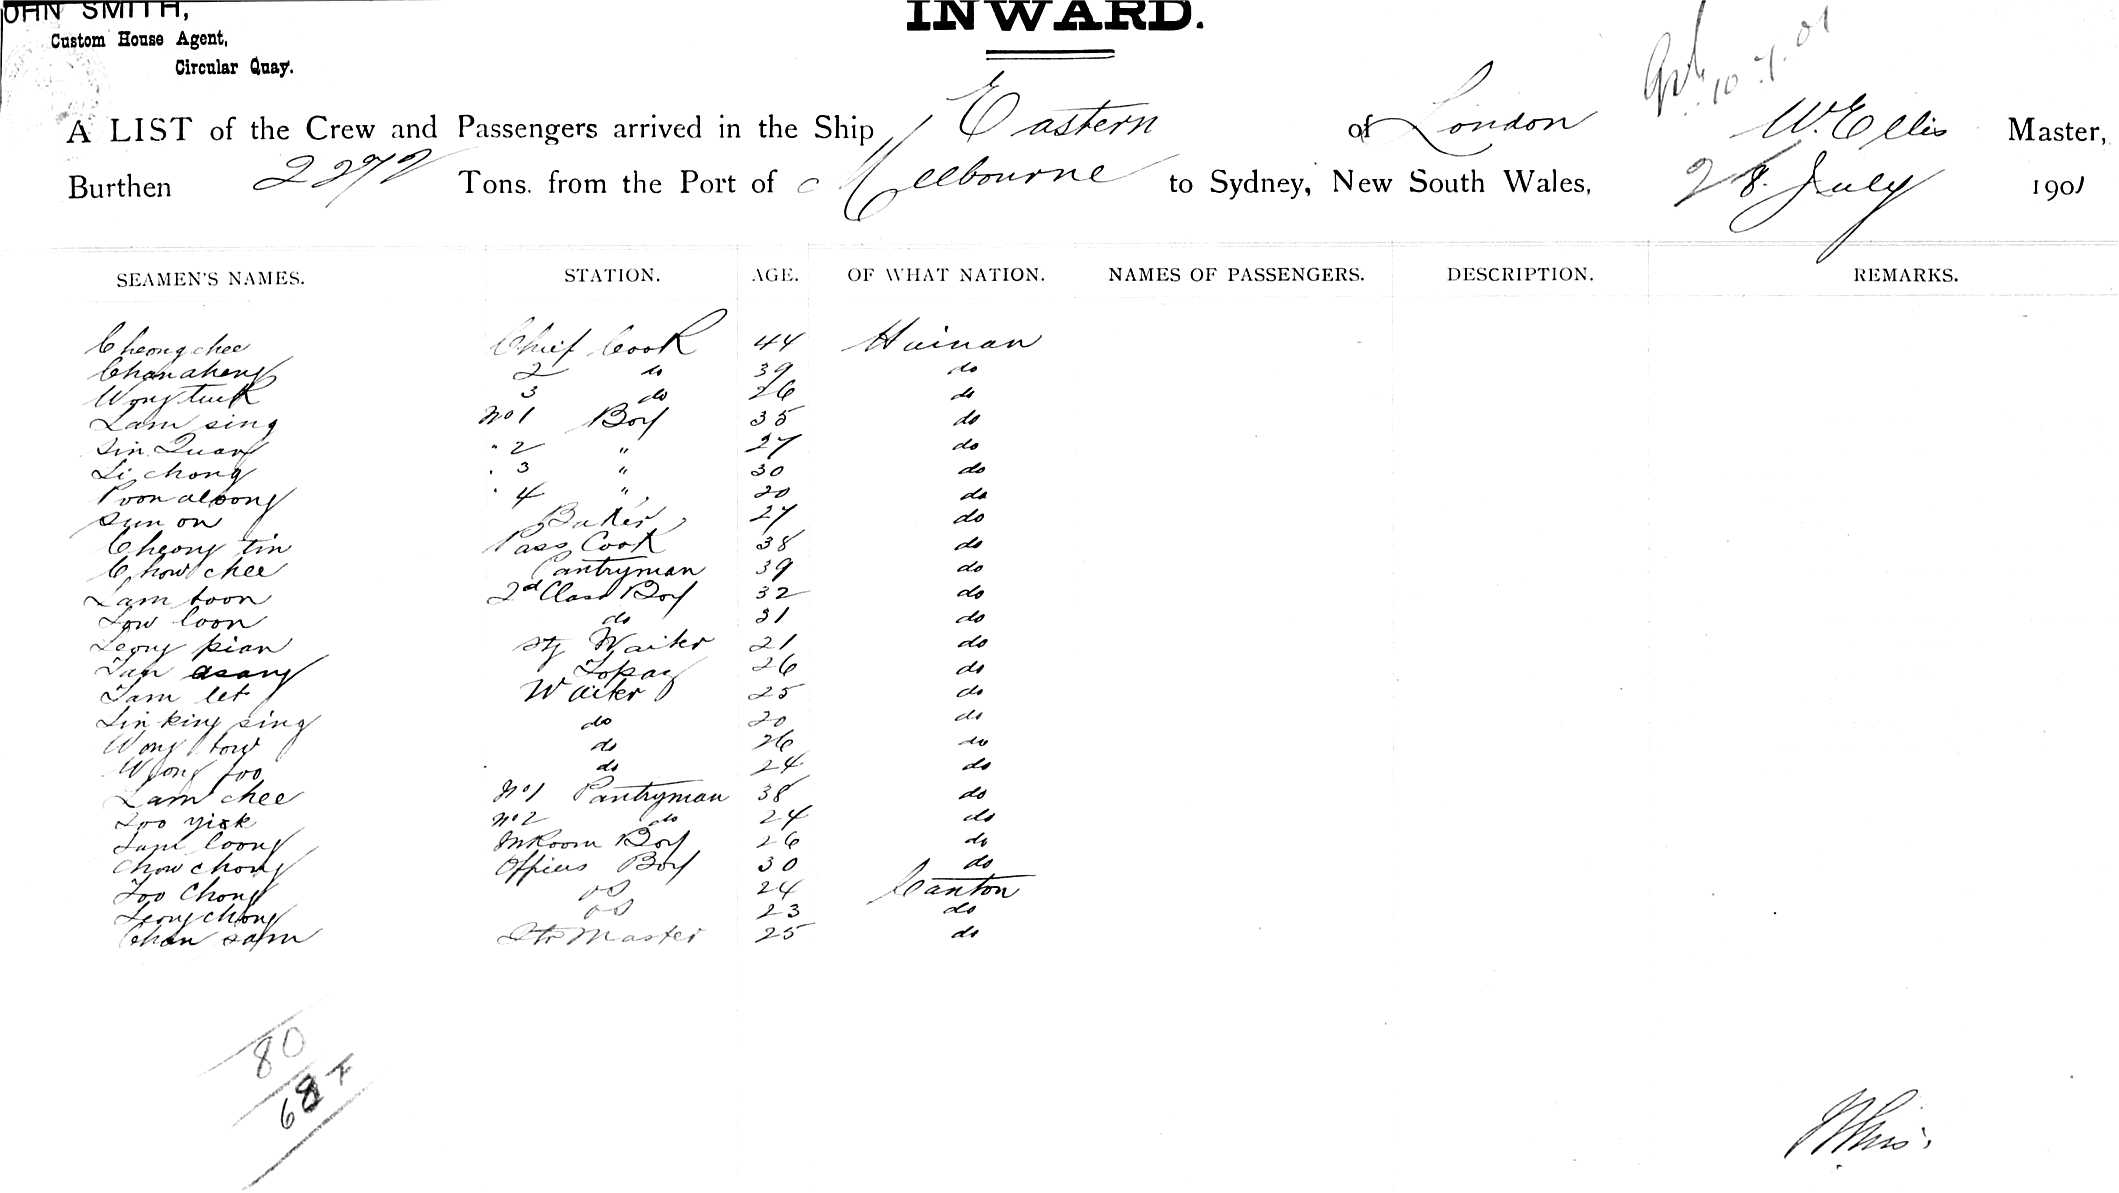 JOHN SMITH,
Custom House Agent,
Circular Quay.
INWARD.
10.7.01
A LIST of the Crew and Passengers arrived in the Ship Eastern of London W. Ellis Master,
Burthen 2272 Tons. from the Port of Melbourne to Sydney, New South Wales, 28. July 1901
SEAMEN'S NAMES. STATION. AGE. OF WHAT NATION. NAMES OF PASSENGERS. DESCRIPTION. REMARKS.
Cheong chee Chief Cook 44 Hainan
Chan aheng 2 do 39 do
Wong tuck 3 do 26 do
Lam sing No 1 Boy 35 do
Sin Quan " 2 " 27 do
Li chong " 3 " 30 do
Poon aloong " 4 " 20 do
Sun on Baker 27 do
Cheong tin Pass Cook 38 do
Chow chee Pantryman 39 do
Lam toon 2d Class Boy 32 do
Low loon do 31 do
Leong kian Stg Waiter 21 do
Tan asang Topas 26 do
Tam let Waiter 25 do
Lin king sing do 20 do
Wong tow do 26 do
Wong foo do 24 do
Lam chee No 1 Pantryman 38 do
Loo yick No 2 do 24 do
Lam loong MRoom Boy 26 do
Chow chong Officers Boy 30 do
Foo Chong OS 24 Canton
Leong chong OS 23 do
Chan sam Str Master 25 do
80
68 F